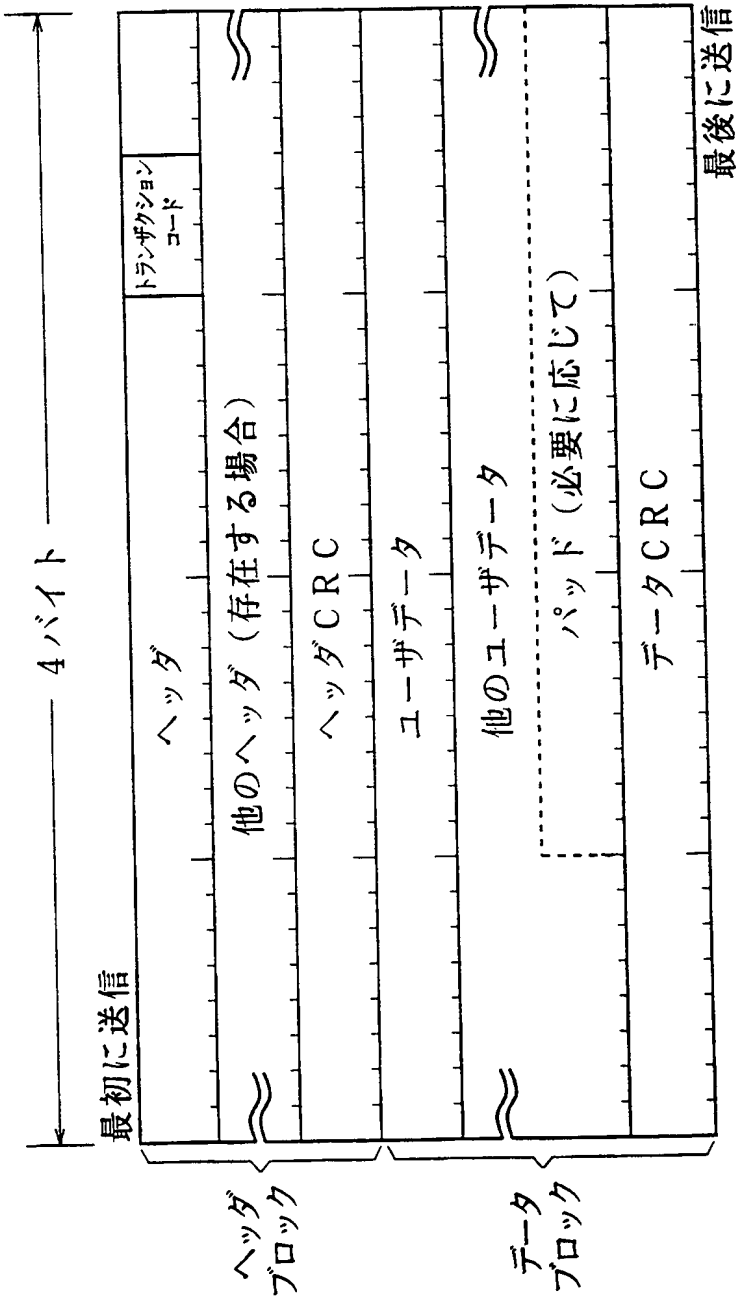 4バイト
最初に送信
ヘッダ
トランザクション
コード
他のヘッダ(存在する場合)
ヘッダCRC
ユーザデータ
他のユーザデータ
パッド(必要に応じて)
データCRC
最後に送信
ヘッダ
ブロック
データ
ブロック